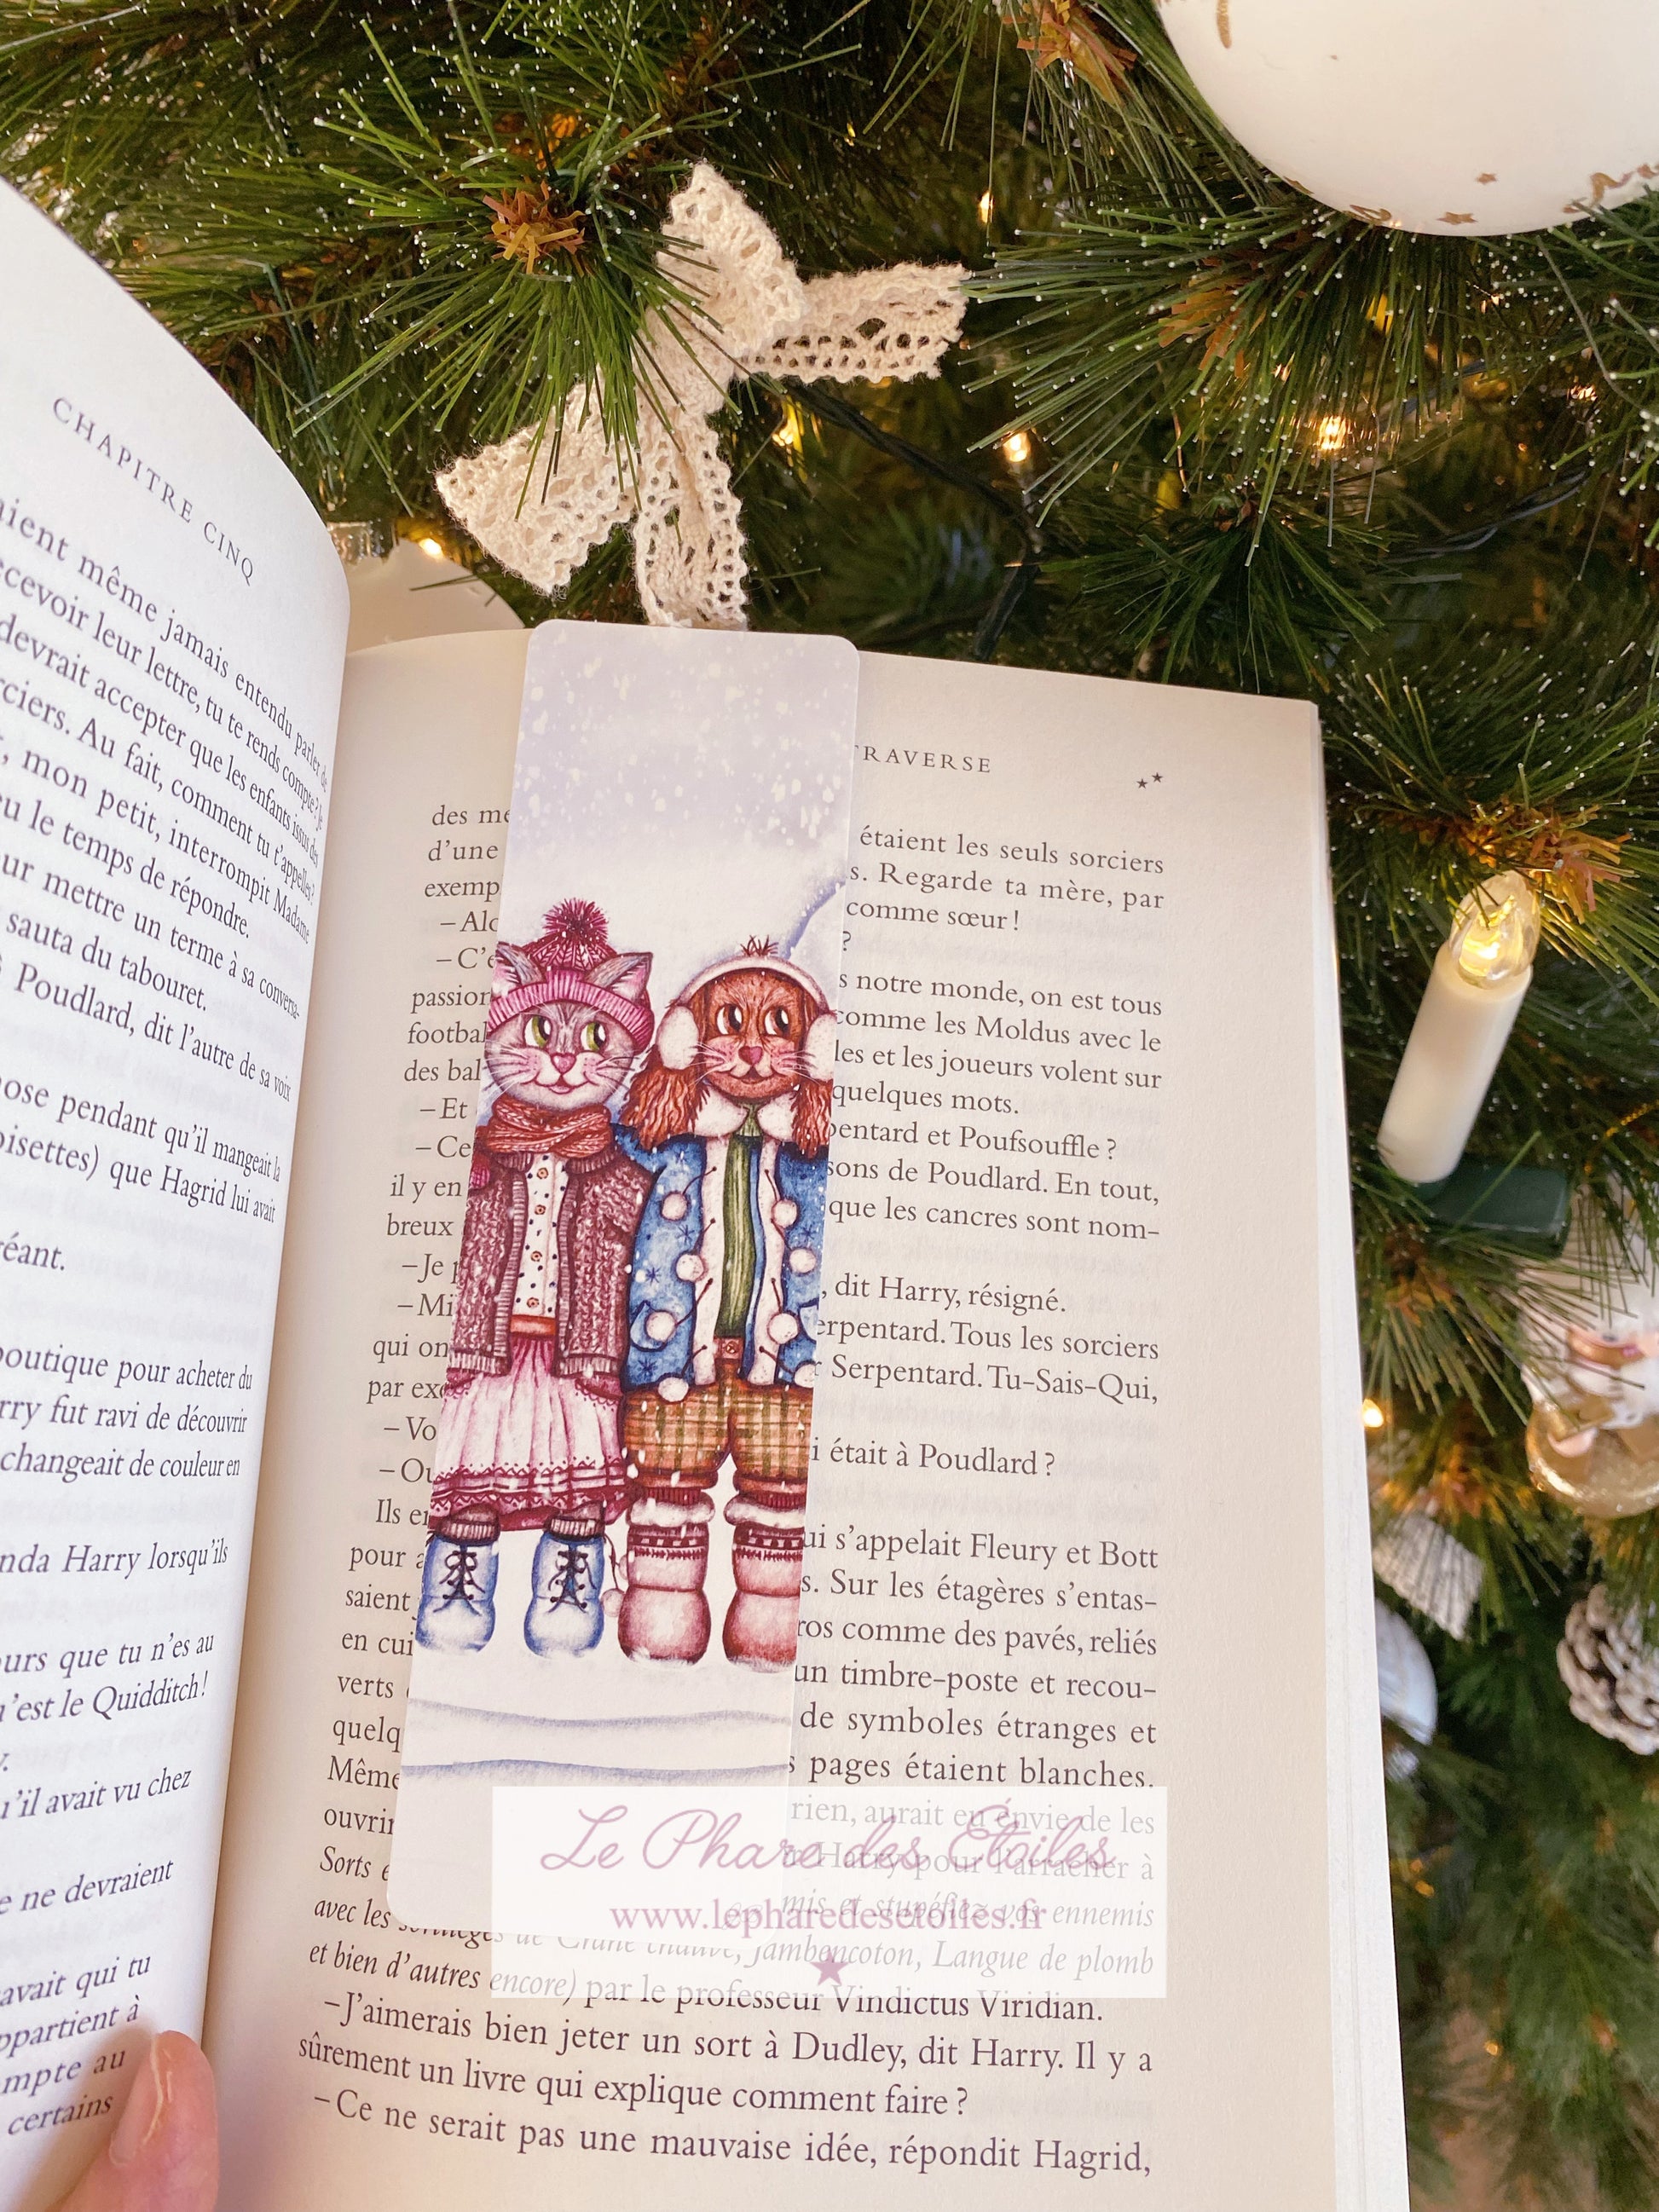 CHAPITRE CINQ
aient même jamais entendu parler de
ecevoir leur lettre, tu te rends compte ? Je
devrait accepter que les enfants issus des
rciers. Au fait, comment tu t'appelles ?
, mon petit, interrompit Madame
eu le temps de répondre.
ur mettre un terme à sa conversa-
sauta du tabouret.
Poudlard, dit l'autre de sa voix
ose pendant qu'il mangeait la
oisettes) que Hagrid lui avait
éant.
boutique pour acheter du
rry fut ravi de découvrir
changeait de couleur en
nda Harry lorsqu'ils
ours que tu n'es au
u'est le Quidditch !
y.
u'il avait vu chez
e ne devraient
avait qui tu
ppartient à
mpte au
certains
TRAVERSE
des mé étaient les seuls sorciers
d'une s. Regarde ta mère, par
exemp comme sœur !
– Alo ?
– C'e s notre monde, on est tous
passion comme les Moldus avec le
footbal les et les joueurs volent sur
des bal quelques mots.
– Et pentard et Poufsouffle ?
– Ce sons de Poudlard. En tout,
il y en que les cancres sont nom-
breux
– Je p , dit Harry, résigné.
– Mi erpentard. Tous les sorciers
qui on r Serpentard. Tu-Sais-Qui,
par exe
– Vo i était à Poudlard ?
– Ou
Ils en ui s'appelait Fleury et Bott
pour a s. Sur les étagères s'entas-
saient ros comme des pavés, reliés
en cui un timbre-poste et recou-
verts de symboles étranges et
quelq s pages étaient blanches.
Même rien, aurait eu envie de les
ouvrir Harry pour l'arracher à
Sorts e mis et stupéfiez vos ennemis
avec les sortilèges de Crâne chauve, Jambencoton, Langue de plomb
et bien d'autres encore) par le professeur Vindictus Viridian.
– J'aimerais bien jeter un sort à Dudley, dit Harry. Il y a
sûrement un livre qui explique comment faire ?
– Ce ne serait pas une mauvaise idée, répondit Hagrid,
Le Phare des Etoiles
www.lepharedesetoiles.fr